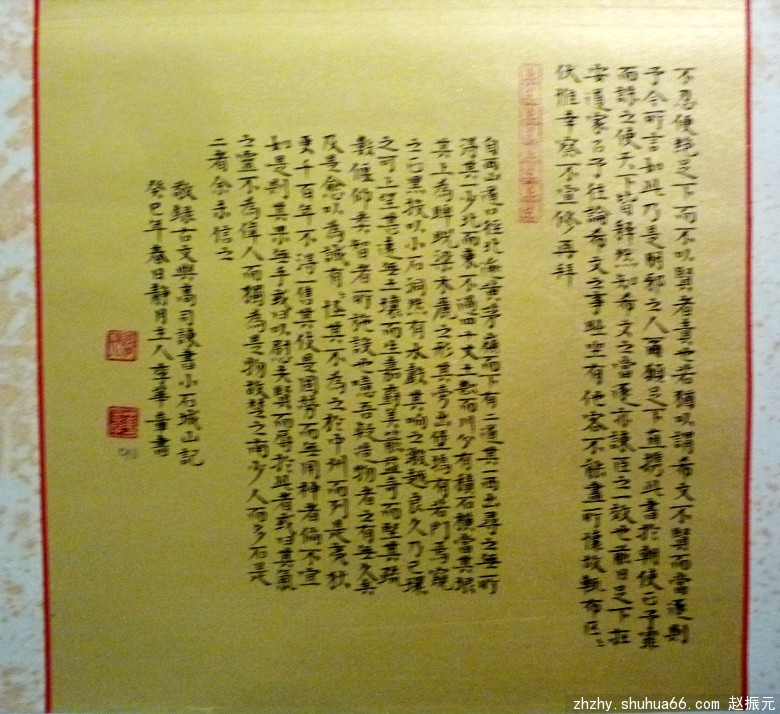 不忍便絕足下而不以賢者責也若猶以謂希文不賢而當逐則
予今所言如此乃是朋邪之人爾願足下直攜此書於朝使正予罪
而誅之使天下皆釋然知希文之當逐亦諫臣之一效也前日足下在
安道家召予往論希文之事時坐有他客不能盡所懷故輒布區區
伏惟幸察不宣修再拜
自西山道口徑北逾黃茅嶺而下有二道其一西出尋之無所
得其一少北而東不過四十丈土斷而川分有積石橫當其垠
其上為睥睨梁欐之形其旁出堡塢有若門焉窺
之正黑投以小石洞然有水聲其響之激越良久乃已環
之可上望甚遠無土壤而生嘉樹美箭益奇而堅其疏
數偃仰類智者所施設也噫吾疑造物者之有無久矣
及是愈以為誠有又怪其不為之於中州而列是夷狄
更千百年不得一售其伎是固勞而無用神者儻不宜
如是則其果無乎或曰以慰夫賢而辱於此者或曰其氣
之靈不為偉人而獨為是物故楚之南少人而多石是
二者余未信之
敬錄古文與高司諫書小石城山記
癸巳年春日靜月主人
zhzhy.shuhua66.com 赵振元